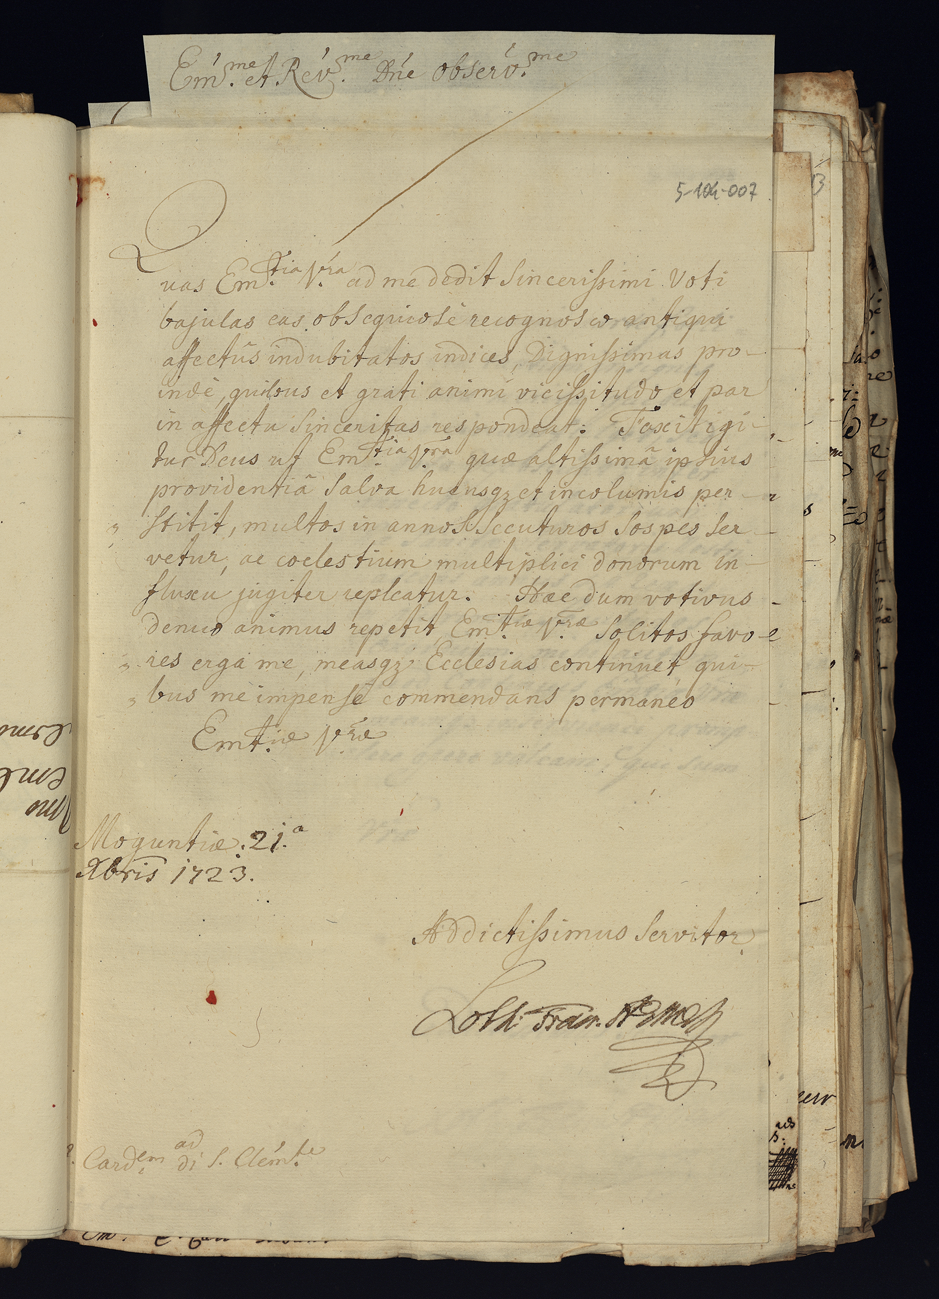 Em̃.me et Rev.me Dñe observ.me
5-104-007
Quas Em.tia V.ra ad me dedit sincerissimi voti
bajulas eas obsequiosè recognosco antiqui
affectûs indubitatos indices, Dignissimas pro-
indè, quibus et grati animi vicissitudo et par
in affectu sinceritas respondeat: Faxit igi-
tur Deus ut Em.tia Vra quæ altissimâ ipsius
providentiâ salva hucusq; et incolumis per-
stitit, multos in annos secuturos sospes ser-
vetur, ac coelestium multiplici donorum in-
fluxu jugiter repleatur. Hæc dum votivus
denuo animus repetit, Em.tiæ V.ræ solitos favo-
res erga me, measq; Ecclesias continuet, qui-
bus me impensè commendans permaneo
Em.tiæ V.ræ
Moguntiæ. 21.a
Xbris 1723.
Addictissimus servitor
Loth: Fran.
Card.em ad di S. Clém.te